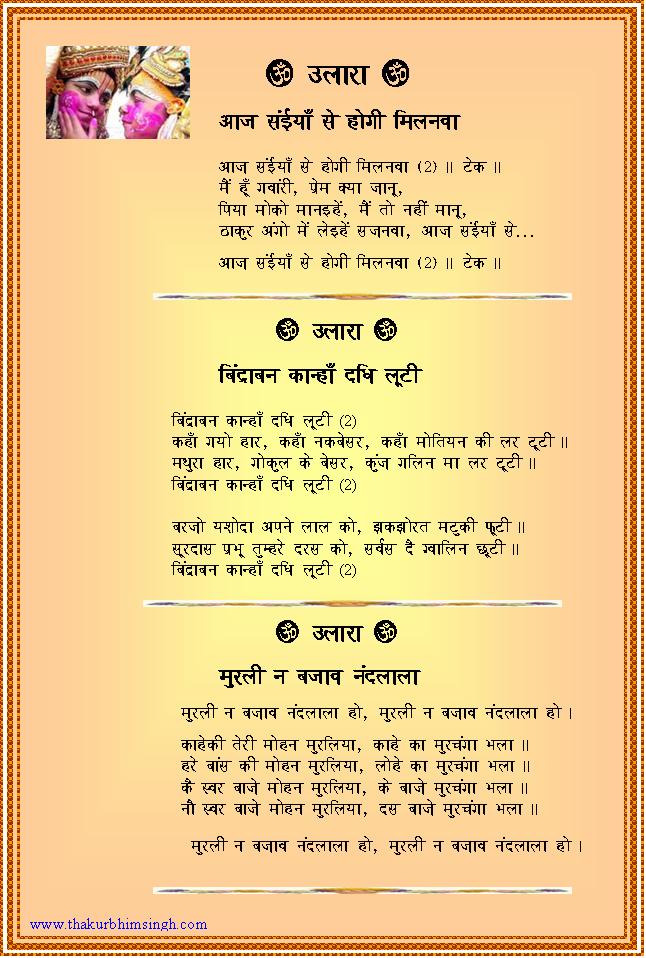 ॐ उलारा ॐ
आज संईयाँ से होगी मिलनवा
आज संईयाँ से होगी मिलनवा (2) ॥ टेक ॥
मैं हूँ गवांरी, प्रेम क्या जानू,
पिया मोको मानइहें, मैं तो नहीं मानू,
ठाकुर अंगो में लेइहें सजनवा, आज संईयाँ से...
आज संईयाँ से होगी मिलनवा (2) ॥ टेक ॥
ॐ उलारा ॐ
बिंद्राबन कान्हाँ दधि लूटी
बिंद्राबन कान्हाँ दधि लूटी (2)
कहाँ गयो हार, कहाँ नकबेसर, कहाँ मोतियन की लर टूटी ॥
मथुरा हार, गोकुल के बेसर, कुंज गलिन मा लर टूटी ॥
बिंद्राबन कान्हाँ दधि लूटी (2)
बरजो यशोदा अपने लाल को, झकझोरत मटुकी फूटी ॥
सूरदास प्रभू तुम्हरे दरस को, सर्वस दै ग्वालिन छूटी ॥
बिंद्राबन कान्हाँ दधि लूटी (2)
ॐ उलारा ॐ
मुरली न बजाव नंदलाला
मुरली न बजाव नंदलाला हो, मुरली न बजाव नंदलाला हो ।
काहेकी तेरी मोहन मुरलिया, काहे का मुरचंगा भला ॥
हरे बांस की मोहन मुरलिया, लोहे का मुरचंगा भला ॥
कै स्वर बाजे मोहन मुरलिया, के बाजे मुरचंगा भला ॥
नौ स्वर बाजे मोहन मुरलिया, दस बाजे मुरचंगा भला ॥
मुरली न बजाव नंदलाला हो, मुरली न बजाव नंदलाला हो ।
www.thakurbhimsingh.com